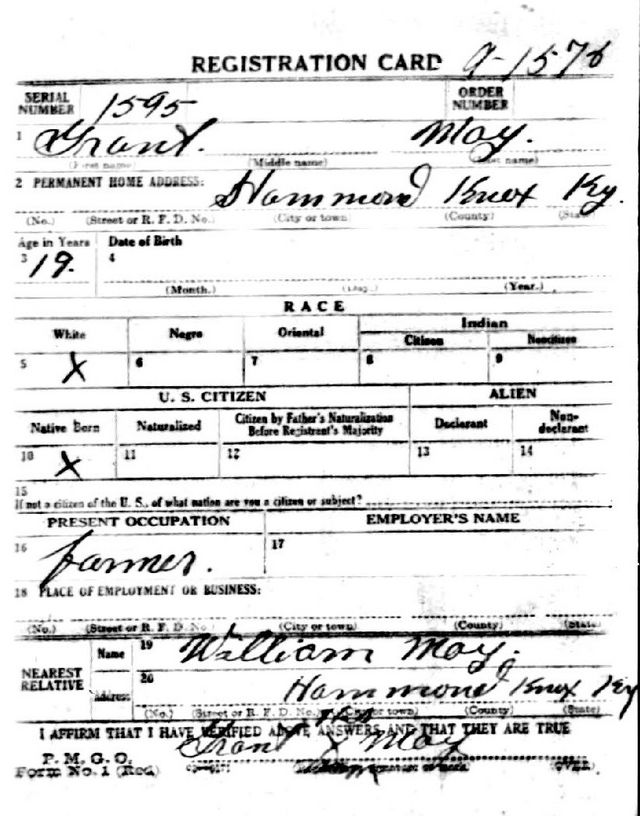 REGISTRATION CARD 9-1576
SERIAL NUMBER 1595 ORDER NUMBER
1 Grant. May.
(First name) (Middle name) (Last name)
2 PERMANENT HOME ADDRESS: Hammond Knox Ky.
(No.) (Street or R. F. D. No.) (City or town) (County) (State)
Age in Years Date of Birth
3 19. 4
(Month.) (Day.) (Year.)
RACE
White Negro Oriental Indian
Citizen Noncitizen
5 X 6 7 8 9
U. S. CITIZEN ALIEN
Native Born Naturalized Citizen by Father's Naturalization Before Registrant's Majority Declarant Non-declarant
10 X 11 12 13 14
15
If not a citizen of the U. S., of what nation are you a citizen or subject?
PRESENT OCCUPATION EMPLOYER'S NAME
16 farmer. 17
18 PLACE OF EMPLOYMENT OR BUSINESS:
(No.) (Street or R. F. D. No.) (City or town) (County) (State)
NEAREST RELATIVE Name 19 William May.
Address 20 Hammond Knox Ky
(No.) (Street or R. F. D. No.) (City or town) (County) (State)
I AFFIRM THAT I HAVE VERIFIED ABOVE ANSWERS AND THAT THEY ARE TRUE
Grant X May
P. M. G. O.
Form No. 1 (Red) (OVER)